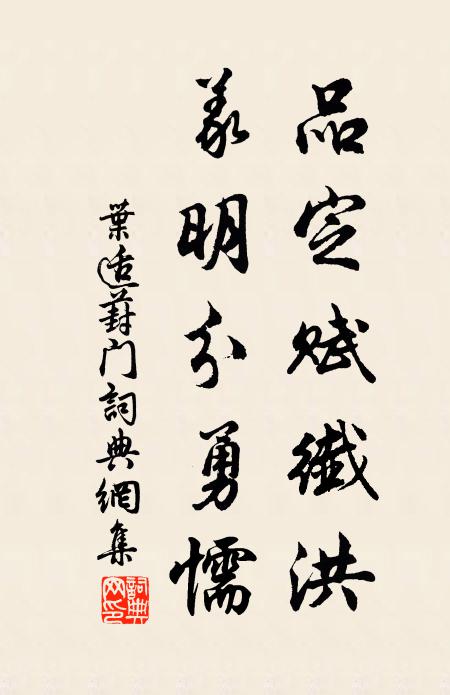 品定賦纖洪
義明分勇懦
葉適葑門詞典網集
詞典網印